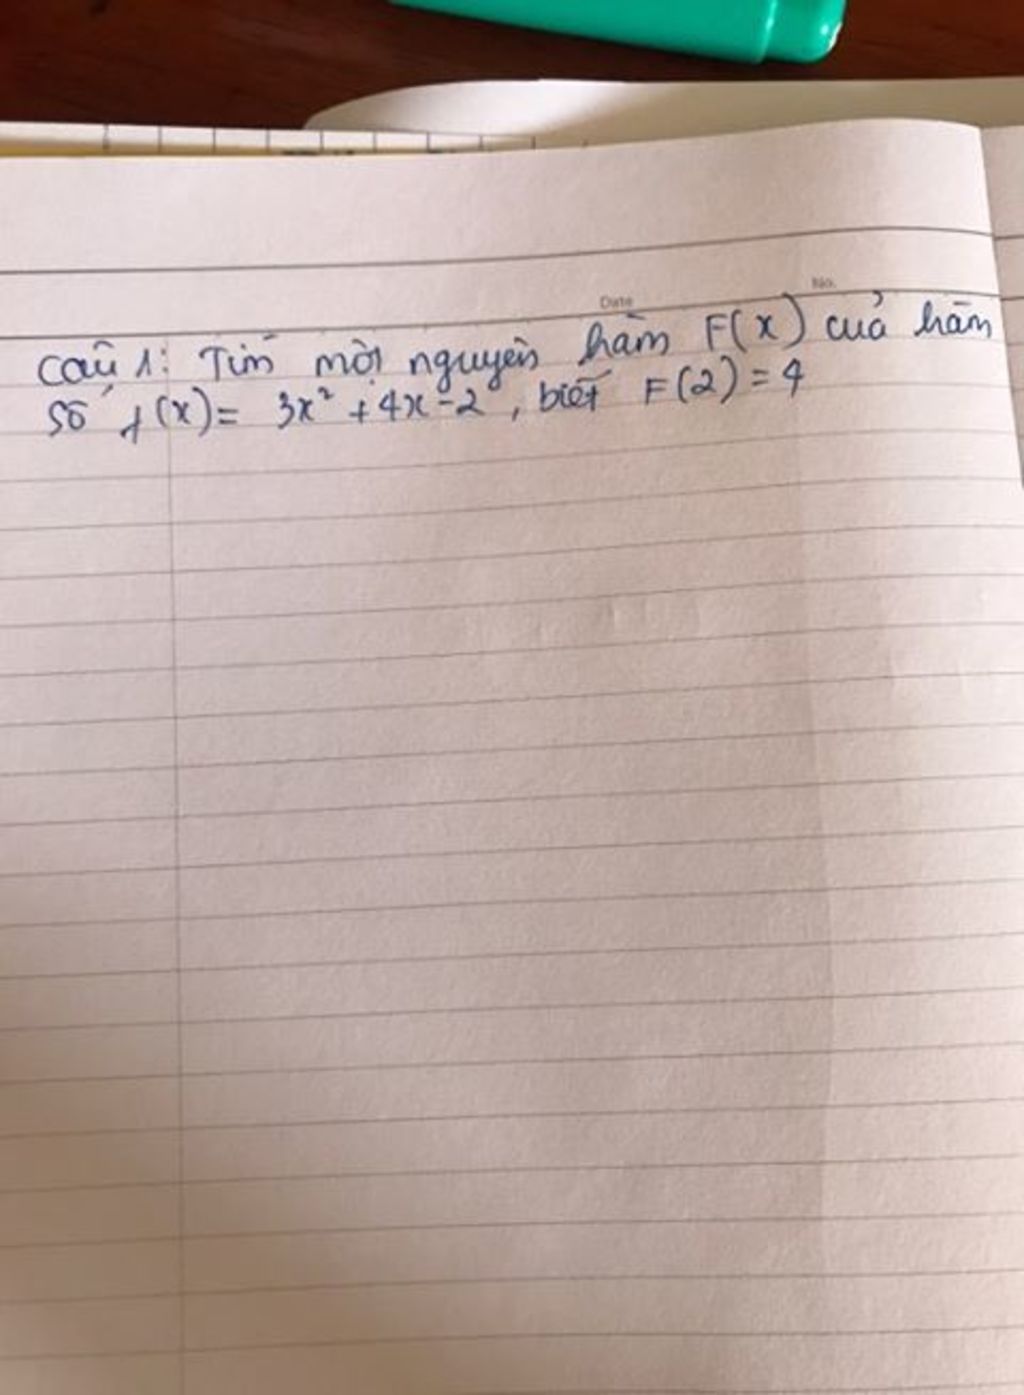 No.
Date
Câu 1: Tìm một nguyên hàm F(x) của hàm
số f(x)= 3x² + 4x - 2 , biết F(2) = 4